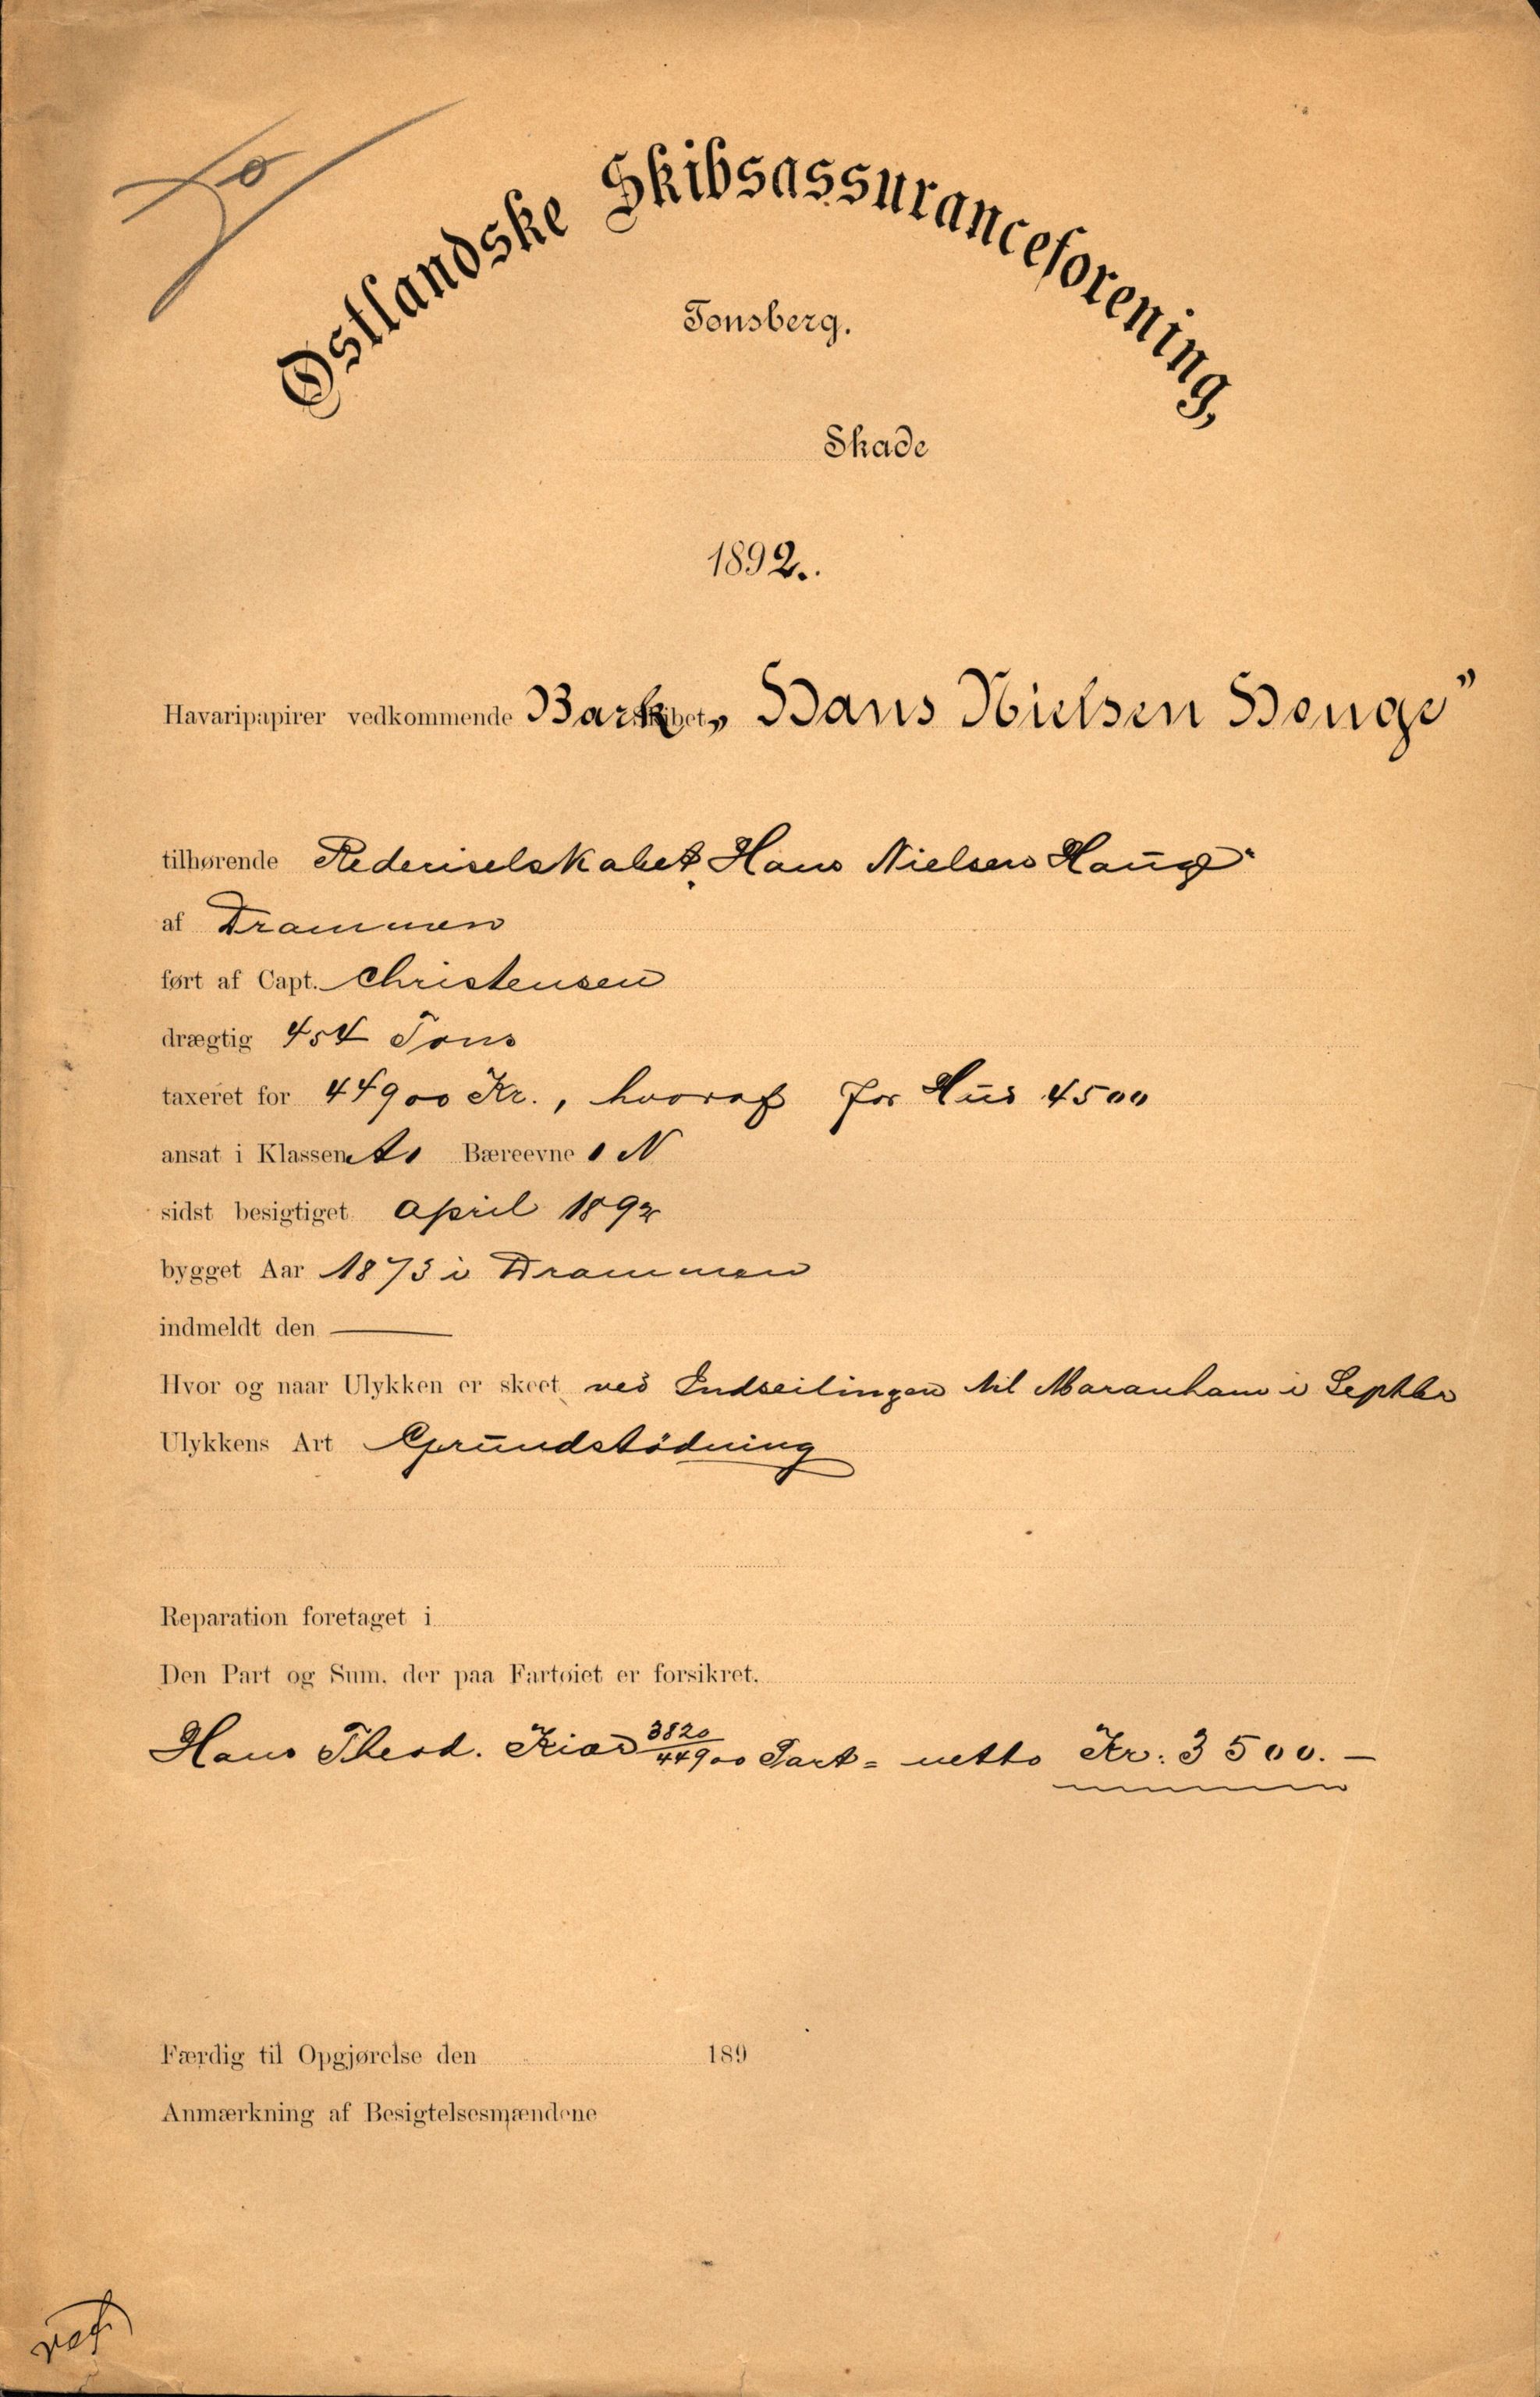 Østlandske Skibsassuranceforening,
Tønsberg.
Skade
1892.
Havaripapirer vedkommende Bark skibet „Hans Nielsen Hauge"
tilhørende Rederiselskabet „Hans Nielsen Haug"
af Drammen
ført af Capt. Christensen
drægtig 454 Tons
taxeret for 44900 Kr., hvoraf for Hud 4500
ansat i Klassen A1 Bæreevne 1 N
sidst besigtiget April 1892
bygget Aar 1873 i Drammen
indmeldt den —
Hvor og naar Ulykken er skeet ved Indseilingen til Maranham i Septbr
Ulykkens Art Grundstödning
Reparation foretaget i
Den Part og Sum, der paa Fartøiet er forsikret.
Hans Theod. Kiær 3820/44900 Part = netto Kr: 3500.—
Færdig til Opgjørelse den 189
Anmærkning af Besigtelsesmændene